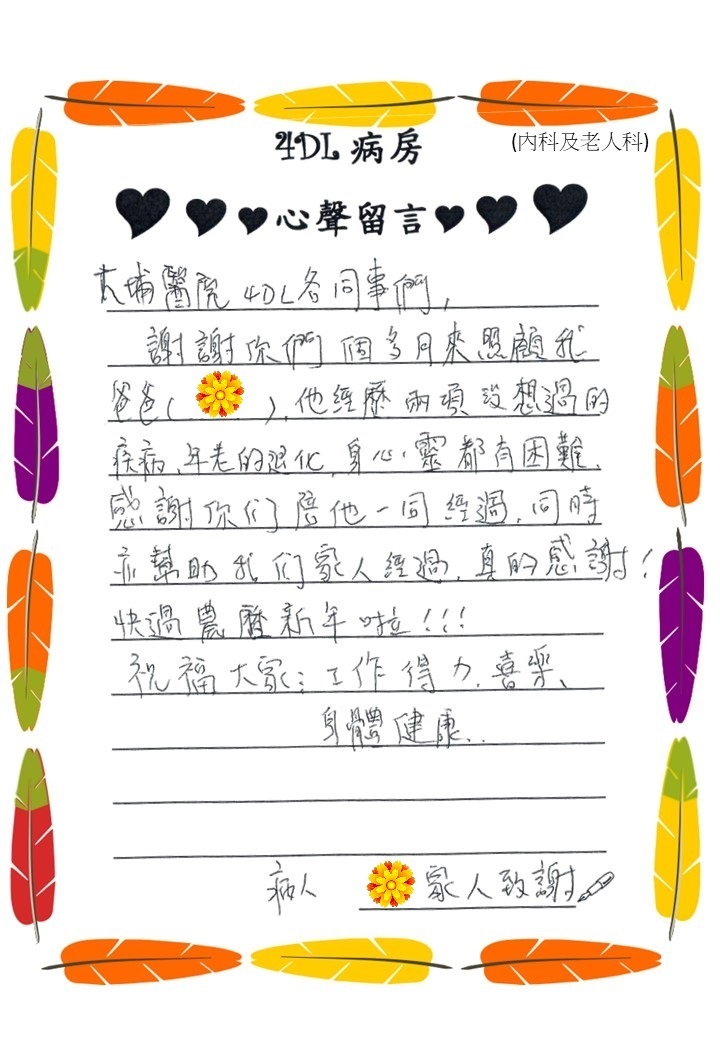 4DL 病房
(內科及老人科)
心聲留言
大埔醫院 4DL各同事們,
謝謝你們個多月來照顧我
爸爸( ),他經歷兩項沒想過的
疾病、年老的退化,身心靈都有困難、
感謝你们陪他一同經過,同時
亦幫助我们家人經過,真的感謝!
快過農曆新年啦!!!
祝福大家:工作得力、喜樂、
身體健康..
病人 家人致謝